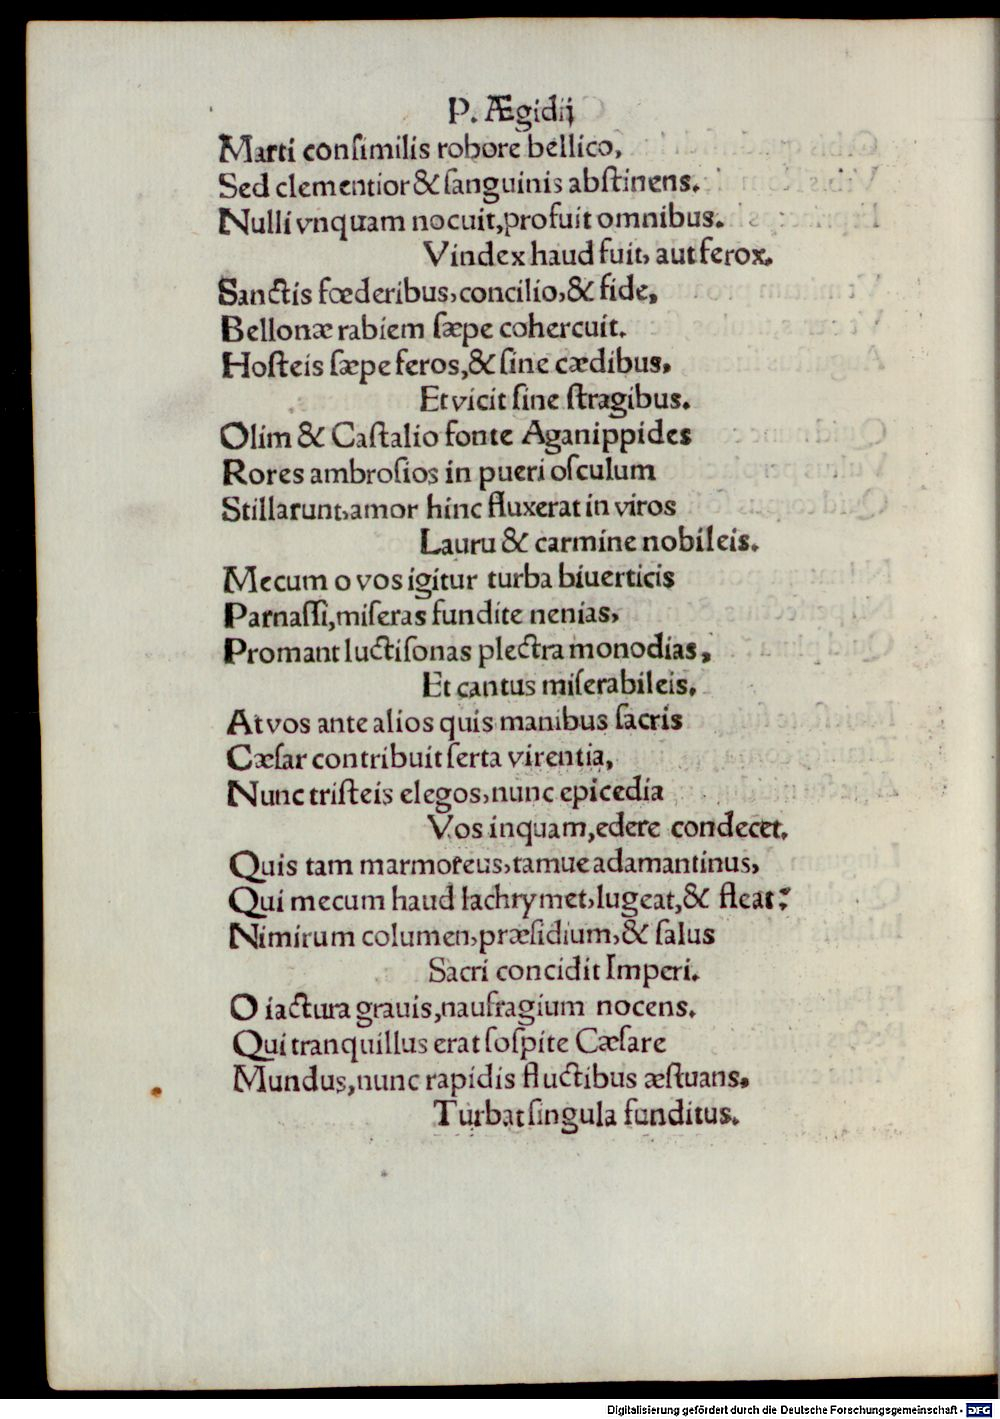 P. Ægidij
Marti conſimilis robore bellico,
Sed clementior & ſanguinis abſtinens.
Nulli vnquam nocuit, profuit omnibus.
Vindex haud fuit, aut ferox.
Sanctis fœderibus, concilio, & fide,
Bellonæ rabiem ſæpe cohercuit.
Hoſteis ſæpe feros, & ſine cædibus,
Et vicit ſine ſtragibus.
Olim & Caſtalio fonte Aganippides
Rores ambroſios in pueri oſculum
Stillarunt, amor hinc fluxerat in viros
Lauru & carmine nobileis.
Mecum o vos igitur turba biuerticis
Parnaſſi, miſeras fundite nenias,
Promant luctiſonas plectra monodias,
Et cantus miſerabileis.
At vos ante alios quis manibus ſacris
Cæſar contribuit ſerta virentia,
Nunc triſteis elegos, nunc epicedia
Vos inquam, edere condecet.
Quis tam marmoreus, tamue adamantinus,
Qui mecum haud lachrymet, lugeat, & fleat?
Nimirum columen, præſidium, & ſalus
Sacri concidit Imperi.
O iactura grauis, naufragium nocens.
Qui tranquillus erat ſoſpite Cæſare
Mundus, nunc rapidis fluctibus æſtuans,
Turbat ſingula funditus.
Digitalisierung gefördert durch die Deutsche Forschungsgemeinschaft - DFG